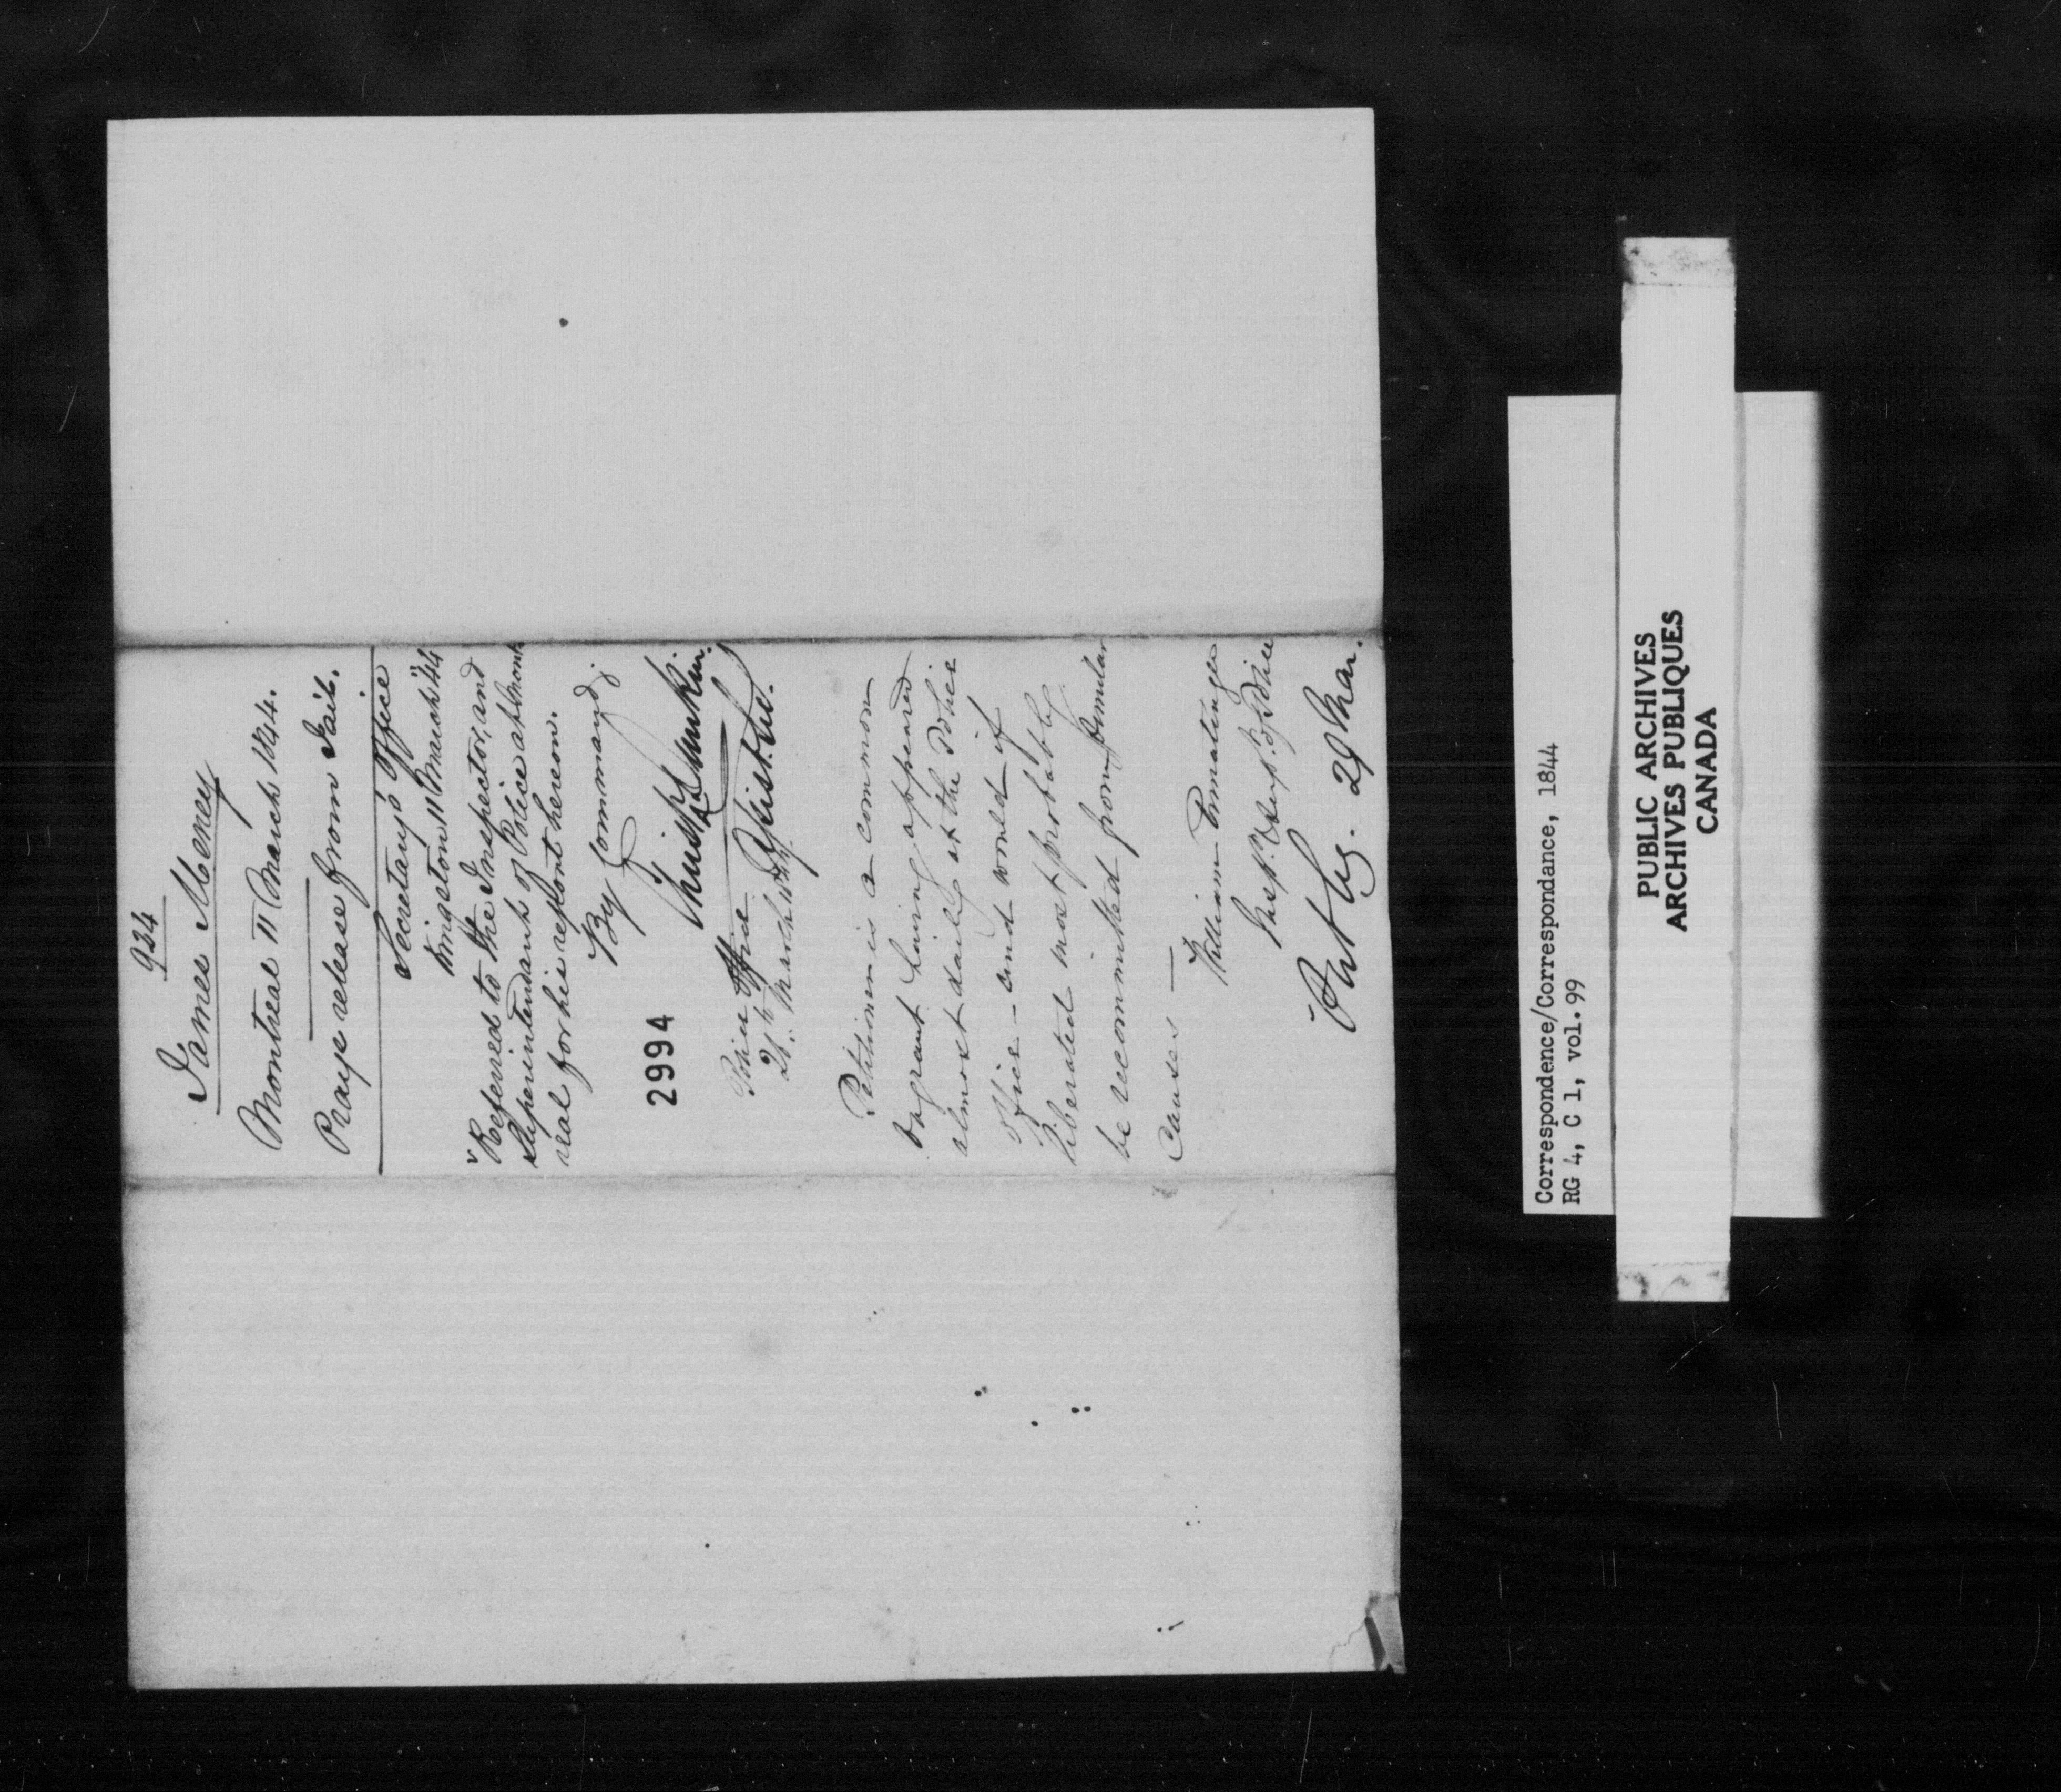 924
James Meney
Montreal 11 March 1844.
Prays release from Gail.
Secretary's Office
Kingston 11 March "44
Referred to the Inspector, and
Superintendant of Police at Mont
real for his report hereon.
By Command,
2994
Assist. Sec.
Police Office
March 1844
Petitioner is a common
vagrant having appeared
almost daily at the Police
Office - and would if
liberated most probably
be recommitted from similar
causes —
William Ermatinger
Insp. & Sup. of Police
29 Mar.
Correspondence/Correspondance, 1844
RG 4, C 1, vol.99
PUBLIC ARCHIVES
ARCHIVES PUBLIQUES
CANADA